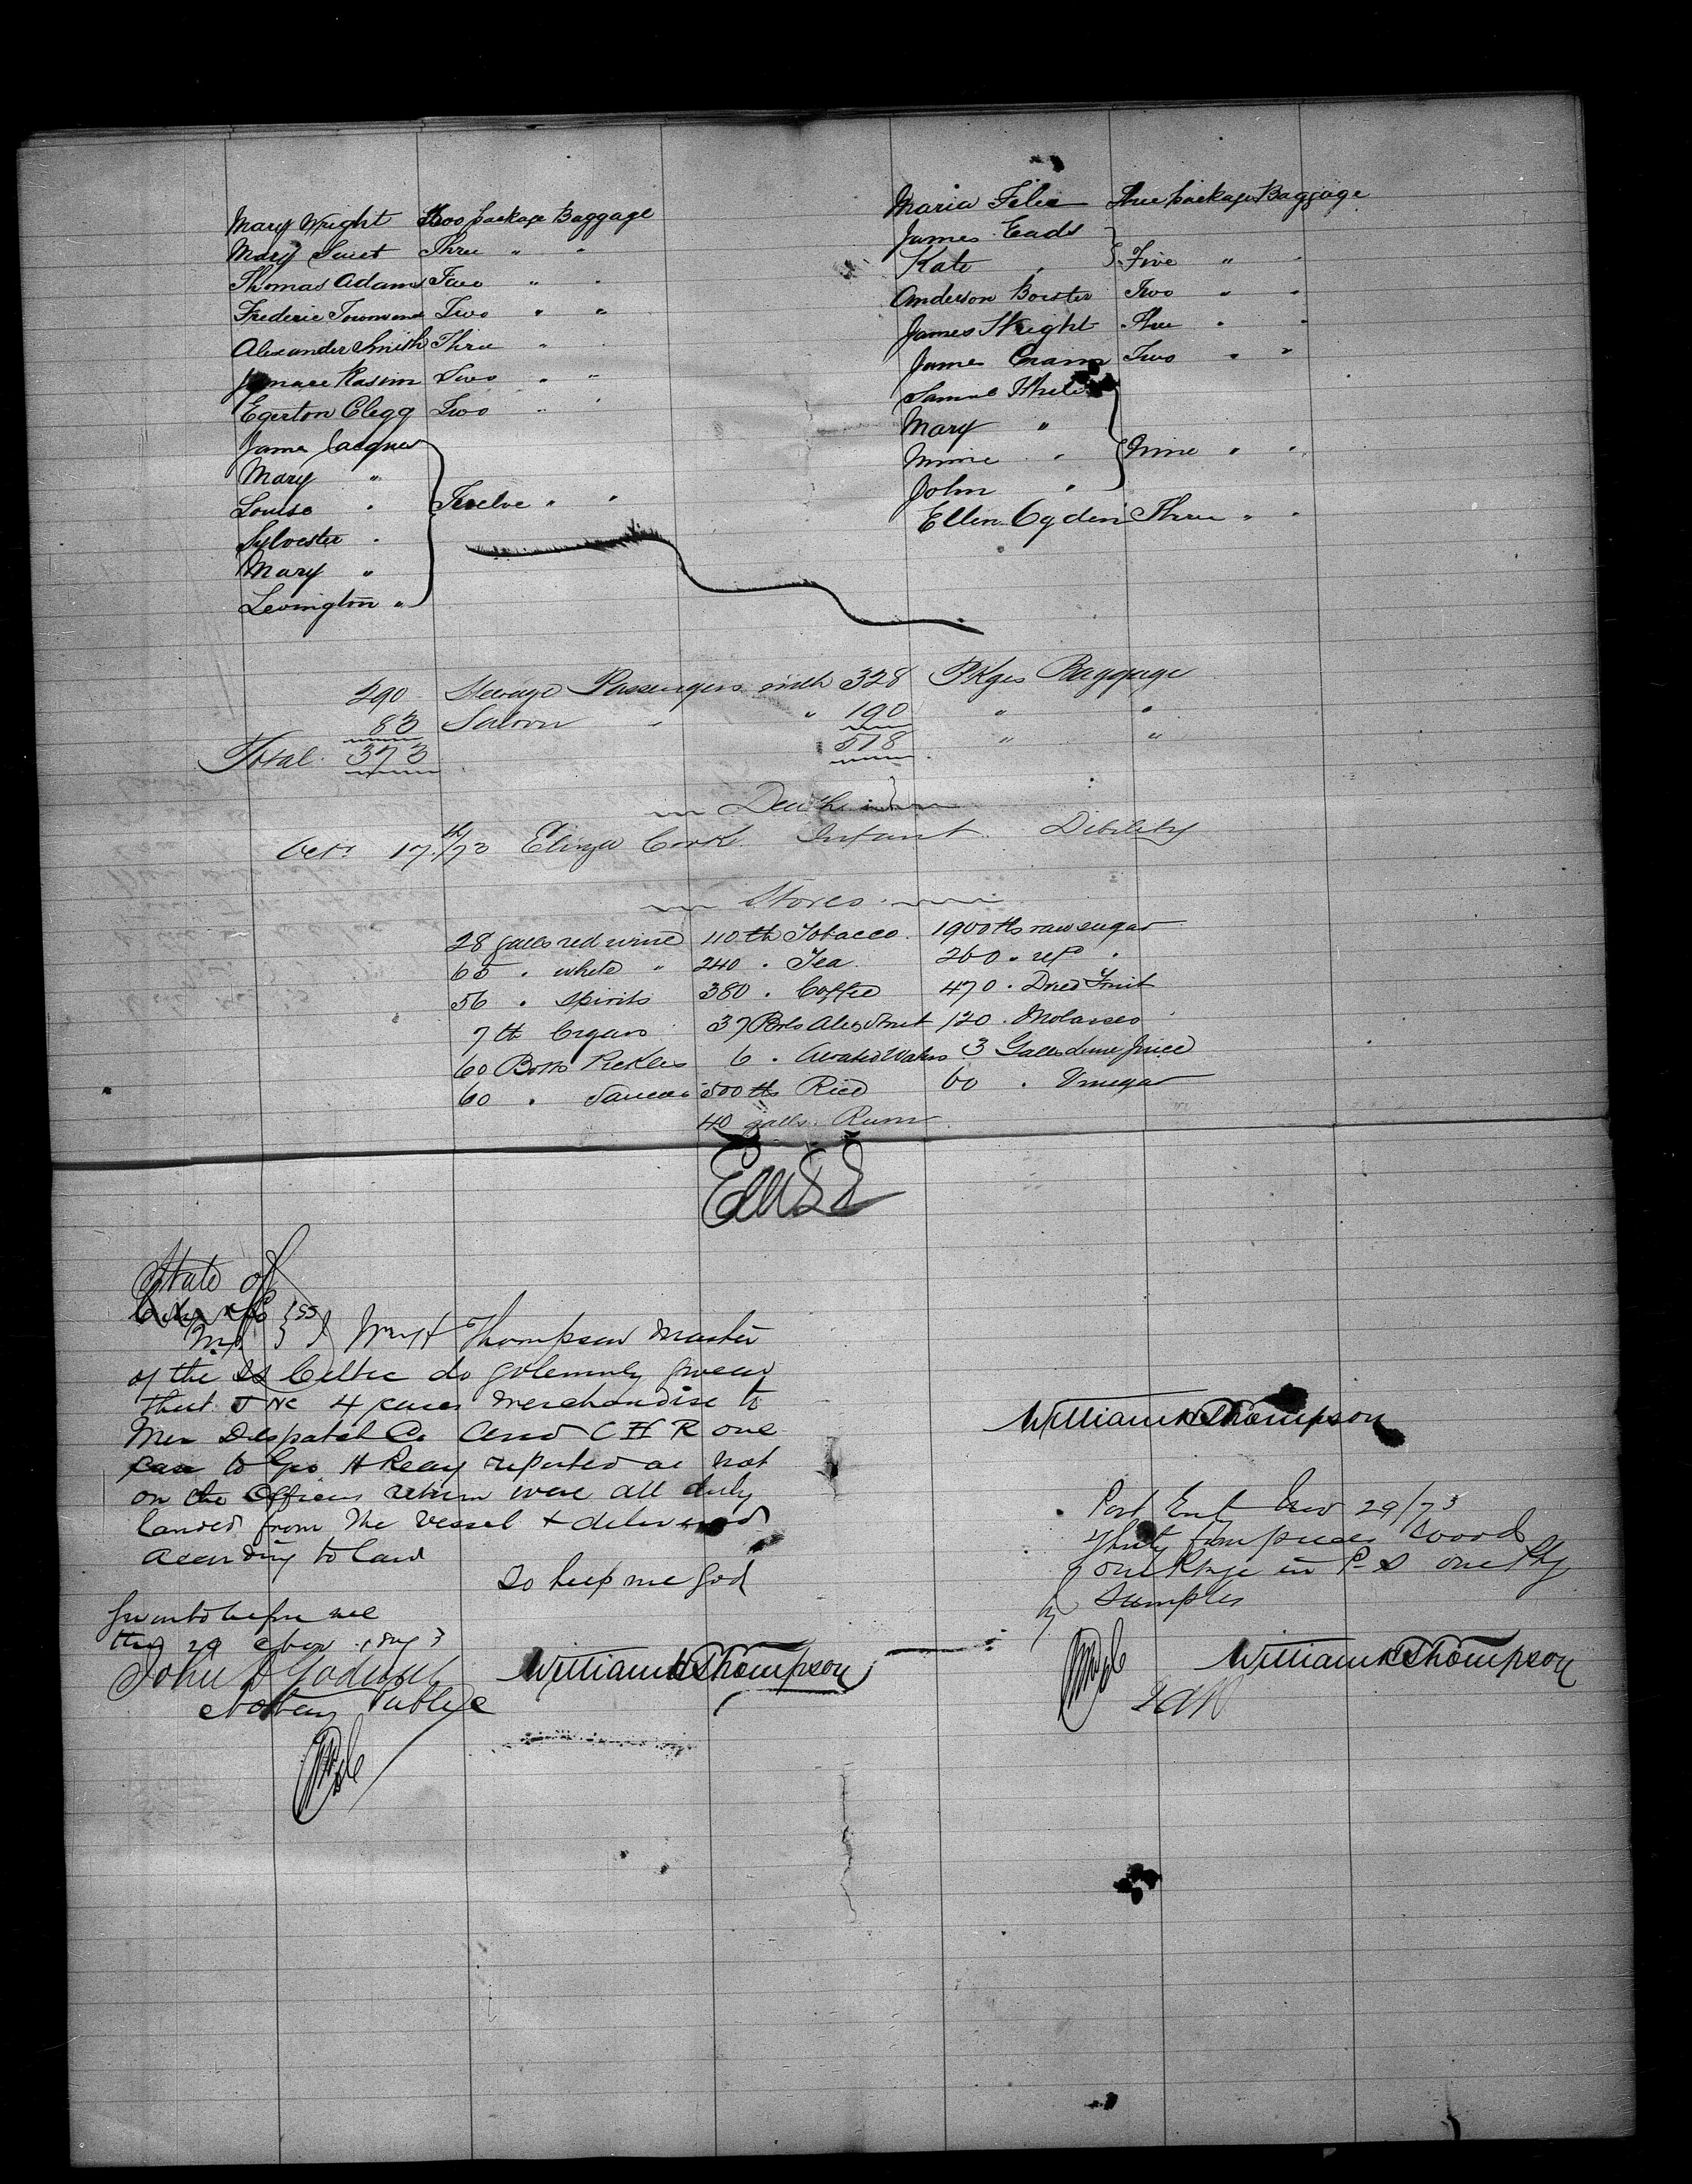 Mary Wright Two package Baggage
Mary Sweet Three " "
Thomas Adams Two " "
Frederic Townsend Two " "
Alexander Smith Three " "
Two " "
Egerton Clegg Two " "
James Jacques
Mary "
Louise " Twelve " "
Sylvester "
Mary "
Levington "
Maria Felix Three packages Baggage
James Eads
Kate " Five " "
Anderson Two " "
James Wright Three " "
James Cram Two " "
Samuel White
Mary "
Minnie " Nine " "
John "
Ellen Ogden Three " "
290 Steerage Passengers with 328 Pkges Baggage
83 Saloon " " 190 " "
Total 373 518 " "
Deaths
Octr 17th/73 Eliza Cook Infant Debility
Stores
28 galls red wine 110 lb Tobacco 1900 lbs raw sugar
65 " white " 240 " Tea 260 " ref "
56 " Spirits 380 " Coffee 470 " Dried Fruit
7 lb Cigars 37 Brls Ale & Stout 120 " Molasses
60 Botts Pickles 6 " Aerated Waters 3 Galls Lime Juice
60 " Sauces 500 lbs Rice 60 " Vinegar
40 galls Rum
State of
City & Co } ss
I Wm H Thompson Master
of the SS Celtic do solemnly swear
that 4 cases merchandise to
Mer Despatch Co and C H R one
case to Geo H Reay reported as not
on the Officers return were all duly
landed from the vessel & delivered
according to law
So help me God
Sworn to before me
this 29
John D
Notary Public
William H Thompson
William H Thompson
Post Ent Nov 29/73
pieces wood
one Pkge in P S one Pkg
Samples
William H Thompson